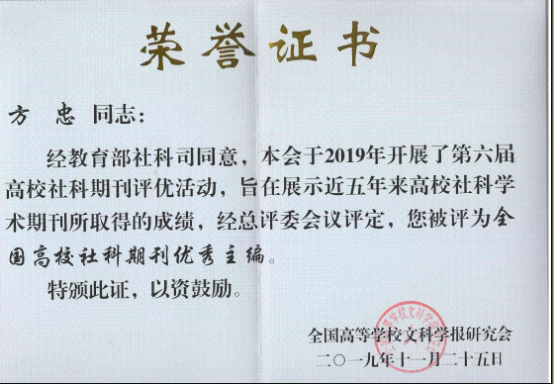 荣誉证书
方 忠 同志：
经教育部社科司同意，本会于2019年开展了第六届
高校社科期刊评优活动，旨在展示近五年来高校社科学
术期刊所取得的成绩，经总评委会议评定，您被评为全
国高校社科期刊优秀主编。
特颁此证，以资鼓励。
全国高等学校文科学报研究会
二〇一九年十一月二十五日